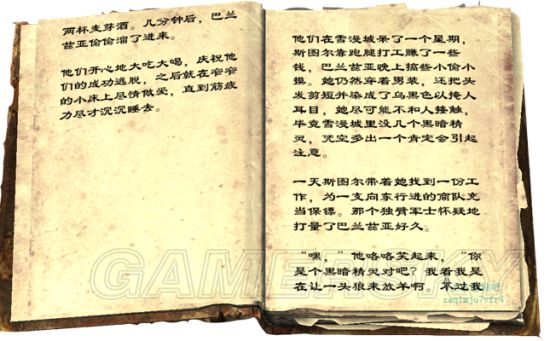 两杯麦芽酒。几分钟后，巴兰
兹亚偷偷溜了进来。
他们开心地大吃大喝，庆祝他
们的成功逃脱，之后就在窄窄
的小床上尽情做爱，直到筋疲
力尽才沉沉睡去。
他们在雪漫城呆了一个星期，
斯图尔靠跑腿打工赚了一些
钱，巴兰兹亚晚上搞些小偷小
摸。她仍然穿着男装，还把头
发剪短并染成了乌黑色以掩人
耳目，她尽可能不和人接触，
毕竟雪漫城里没几个黑暗精
灵，凭空多出一个肯定会引起
注意。
一天斯图尔带着她找到一份工
作，为一支向东行进的商队充
当保镖。那个独臂军士怀疑地
打量了巴兰兹亚好久。
“嘿，”他咯咯笑起来，“你
是个黑暗精灵对吧？我看我是
在让一头狼来放羊啊。不过我
GAMERSKY
zaqimju7vfr4